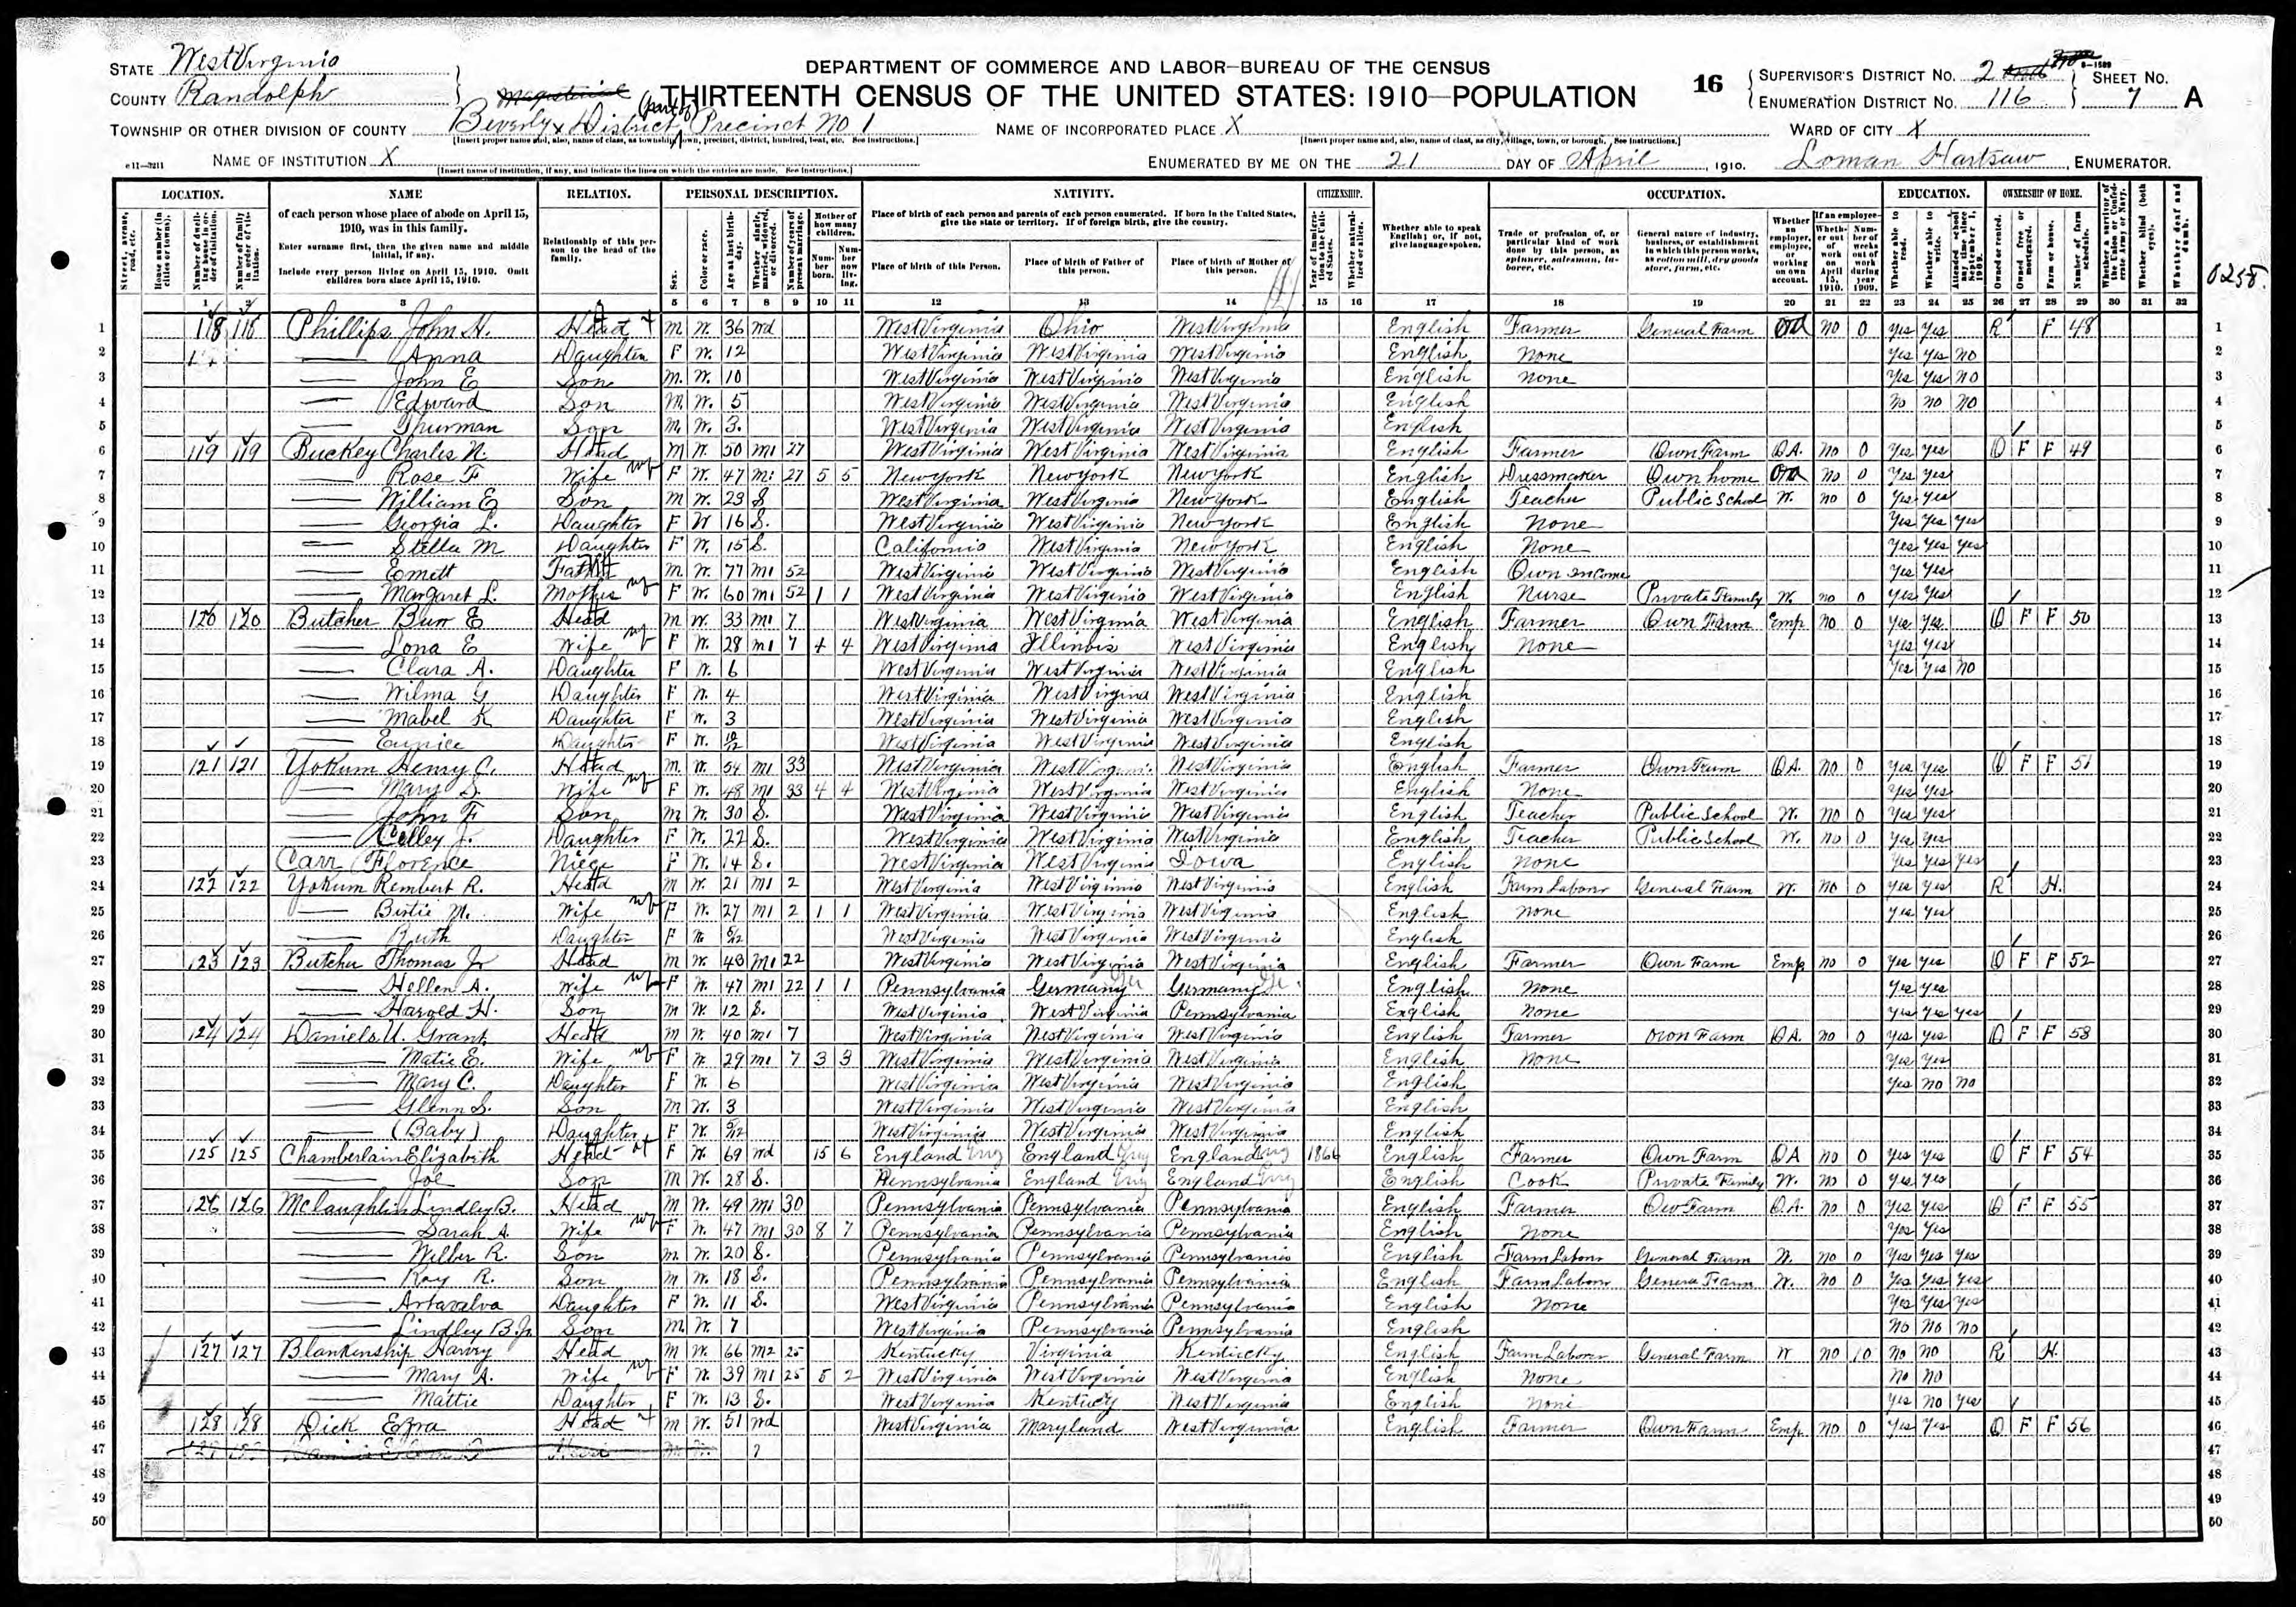 DEPARTMENT OF COMMERCE AND LABOR—BUREAU OF THE CENSUS
THIRTEENTH CENSUS OF THE UNITED STATES: 1910—POPULATION
STATE West Virginia
COUNTY Randolph
TOWNSHIP OR OTHER DIVISION OF COUNTY Beverly x District (part of) Precinct No 1
[Insert proper name and, also, name of class, as township, town, precinct, district, hundred, beat, etc. See instructions.]
NAME OF INCORPORATED PLACE X
[Insert proper name and, also, name of class, as city, village, town, or borough. See instructions.]
WARD OF CITY X
16 SUPERVISOR'S DISTRICT NO. 2 SHEET NO.
ENUMERATION DISTRICT NO. 116 7 A
NAME OF INSTITUTION X
[Insert name of institution, if any, and indicate the lines on which the entries are made. See instructions.]
ENUMERATED BY ME ON THE 21 DAY OF April, 1910. Loman Hartsaw, ENUMERATOR.
LOCATION. NAME RELATION. PERSONAL DESCRIPTION. NATIVITY. CITIZENSHIP. OCCUPATION. EDUCATION. OWNERSHIP OF HOME.
of each person whose place of abode on April 15, 1910, was in this family.
Enter surname first, then the given name and middle initial, if any.
Include every person living on April 15, 1910. Omit children born since April 15, 1910.
Relationship of this person to the head of the family.
Place of birth of each person and parents of each person enumerated. If born in the United States, give the state or territory. If of foreign birth, give the country.
Place of birth of this Person. Place of birth of Father of this person. Place of birth of Mother of this person.
Whether able to speak English; or, if not, give language spoken.
0258
1 118 118 Phillips John H. Head M W. 36 Wd West Virginia Ohio West Virginia English Farmer General Farm OA no 0 yes yes R F 48
2 Anna Daughter F W. 12 West Virginia West Virginia West Virginia English None yes yes no
3 John E Son M. W. 10 West Virginia West Virginia West Virginia English None yes yes no
4 Edward Son M. W. 5 West Virginia West Virginia West Virginia English no no no
5 Thurman Son M. W. 3. West Virginia West Virginia West Virginia English
6 119 119 Buckey Charles N. Head M W. 50 M1 27 West Virginia West Virginia West Virginia English Farmer Own Farm OA. No 0 yes yes O F F 49
7 Rose F Wife F W. 47 M1 27 5 5 New York New York New York English Dressmaker Own home OA no 0 yes yes
8 William E Son M W. 23 S West Virginia West Virginia New York English Teacher Public School W. no 0 yes yes
9 Georgia L. Daughter F W 16 S. West Virginia West Virginia New York English None yes yes yes
10 Stella M Daughter F W. 15 S. California West Virginia New York English None yes yes yes
11 Emett Father M W. 77 M1 52 West Virginia West Virginia West Virginia English Own Income yes yes
12 Margaret L. Mother F W. 60 M1 52 1 1 West Virginia West Virginia West Virginia English Nurse Private Family W. no 0 yes yes
13 120 120 Butcher Burr E Head M W. 33 M1 7 West Virginia West Virginia West Virginia English Farmer Own Farm Emp No 0 yes yes O F F 50
14 Lona E Wife F W. 28 M1 7 4 4 West Virginia Illinois West Virginia English None yes yes
15 Clara A. Daughter F W. 6 West Virginia West Virginia West Virginia English yes yes no
16 Wilma G Daughter F W. 4 West Virginia West Virginia West Virginia English
17 Mabel K Daughter F W. 3 West Virginia West Virginia West Virginia English
18 Eunice Daughter F W. 10/12 West Virginia West Virginia West Virginia English
19 121 121 Yokum Henry C. Head M. W. 54 M1 33 West Virginia West Virginia West Virginia English Farmer Own Farm OA. No 0 yes yes O F F 51
20 Mary S. Wife F W. 48 M1 33 4 4 West Virginia West Virginia West Virginia English None yes yes
21 John F Son M W. 30 S. West Virginia West Virginia West Virginia English Teacher Public School W. no 0 yes yes
22 Celley J. Daughter F W. 22 S. West Virginia West Virginia West Virginia English Teacher Public School W. no 0 yes yes
23 Carr Florence Niece F W. 14 S. West Virginia West Virginia Iowa English None yes yes yes
24 122 122 Yokum Rembert R. Head M W. 21 M1 2 West Virginia West Virginia West Virginia English Farm Laborer General Farm W. No 0 yes yes R H.
25 Birtie M. Wife F W. 27 M1 2 1 1 West Virginia West Virginia West Virginia English None yes yes
26 Ruth Daughter F W West Virginia West Virginia West Virginia English
27 123 123 Butcher Thomas Jr Head M W. 43 M1 22 West Virginia West Virginia West Virginia English Farmer Own Farm Emp no 0 yes yes O F F 52
28 Hellen A. Wife F W. 47 M1 22 1 1 Pennsylvania Germany Germany English None yes yes
29 Harold H. Son M W. 12 S. West Virginia West Virginia Pennsylvania English None yes yes yes
30 124 124 Daniels U. Grant Head M W. 40 M1 7 West Virginia West Virginia West Virginia English Farmer Own Farm OA. no 0 yes yes O F F 53
31 Matie E. Wife F W. 29 M1 7 3 3 West Virginia West Virginia West Virginia English None yes yes
32 Mary C. Daughter F W. 6 West Virginia West Virginia West Virginia English yes no no
33 Glenn S. Son M W. 3 West Virginia West Virginia West Virginia English
34 (Baby) Daughter F W. West Virginia West Virginia West Virginia English
35 125 125 Chamberlain Elizabeth Head F W. 69 Wd 15 6 England England England 1866 English Farmer Own Farm OA no 0 yes yes O F F 54
36 Joe Son M W. 28 S. Pennsylvania England England English Cook Private Family W. no 0 yes yes
37 126 126 Mclaughlin Lindley B. Head M W. 49 M1 30 Pennsylvania Pennsylvania Pennsylvania English Farmer Ow Farm OA. no 0 yes yes O F F 55
38 Sarah A. Wife F W. 47 M1 30 8 7 Pennsylvania Pennsylvania Pennsylvania English None yes yes
39 Wilber R. Son M. W. 20 S. Pennsylvania Pennsylvania Pennsylvania English Farm Laborer General Farm W. no 0 yes yes yes
40 Ray R. Son M W. 18 S. Pennsylvania Pennsylvania Pennsylvania English Farm Laborer General Farm W. no 0 yes yes yes
41 Artavalva Daughter F W. 11 S. West Virginia Pennsylvania Pennsylvania English None yes yes yes
42 Lindley B. Jr. Son M. W. 7 West Virginia Pennsylvania Pennsylvania English no no no
43 127 127 Blankenship Harvy Head M W. 66 M2 25 Kentucky Virginia Kentucky English Farm Laborer General Farm W no 10 no no R H.
44 Mary A. Wife F W. 39 M1 25 5 2 West Virginia West Virginia West Virginia English None no no
45 Mattie Daughter F W. 13 S. West Virginia Kentucky West Virginia English None yes no yes
46 128 128 Dick Ezra Head M W. 51 Wd West Virginia Maryland West Virginia English Farmer Own Farm Emp no 0 yes yes O F F 56
47
48
49
50